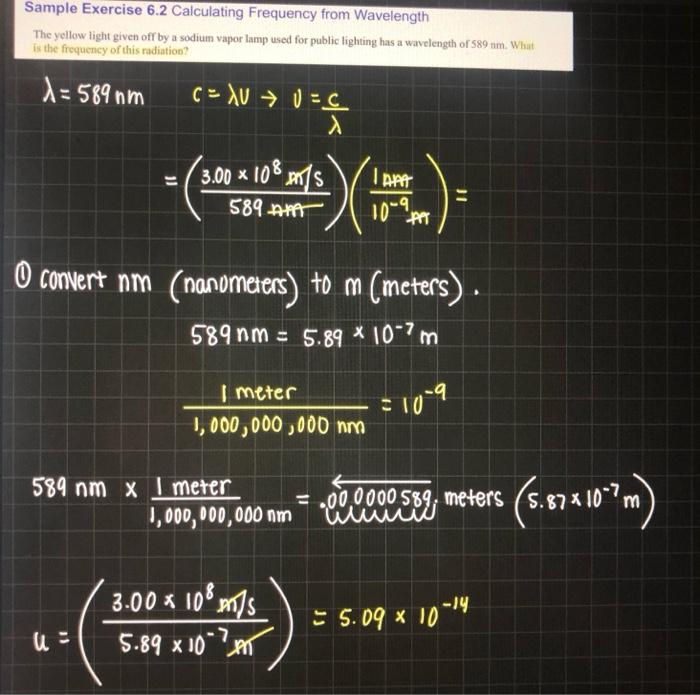 Sample Exercise 6.2 Calculating Frequency from Wavelength
The yellow light given off by a sodium vapor lamp used for public lighting has a wavelength of 589 nm. What
is the frequency of this radiation?
λ = 589 nm C = λυ → υ = c/λ
= (3.00 × 10⁸ m/s / 589 nm) (1 nm / 10⁻⁹ m) =
① convert nm (nanometers) to m (meters).
589 nm = 5.89 × 10⁻⁷ m
1 meter / 1,000,000,000 nm = 10⁻⁹
589 nm x 1 meter / 1,000,000,000 nm = .000000589. meters (5.87 x 10⁻⁷ m)
u = (3.00 x 10⁸ m/s / 5.89 x 10⁻⁷ m) = 5.09 x 10⁻¹⁴